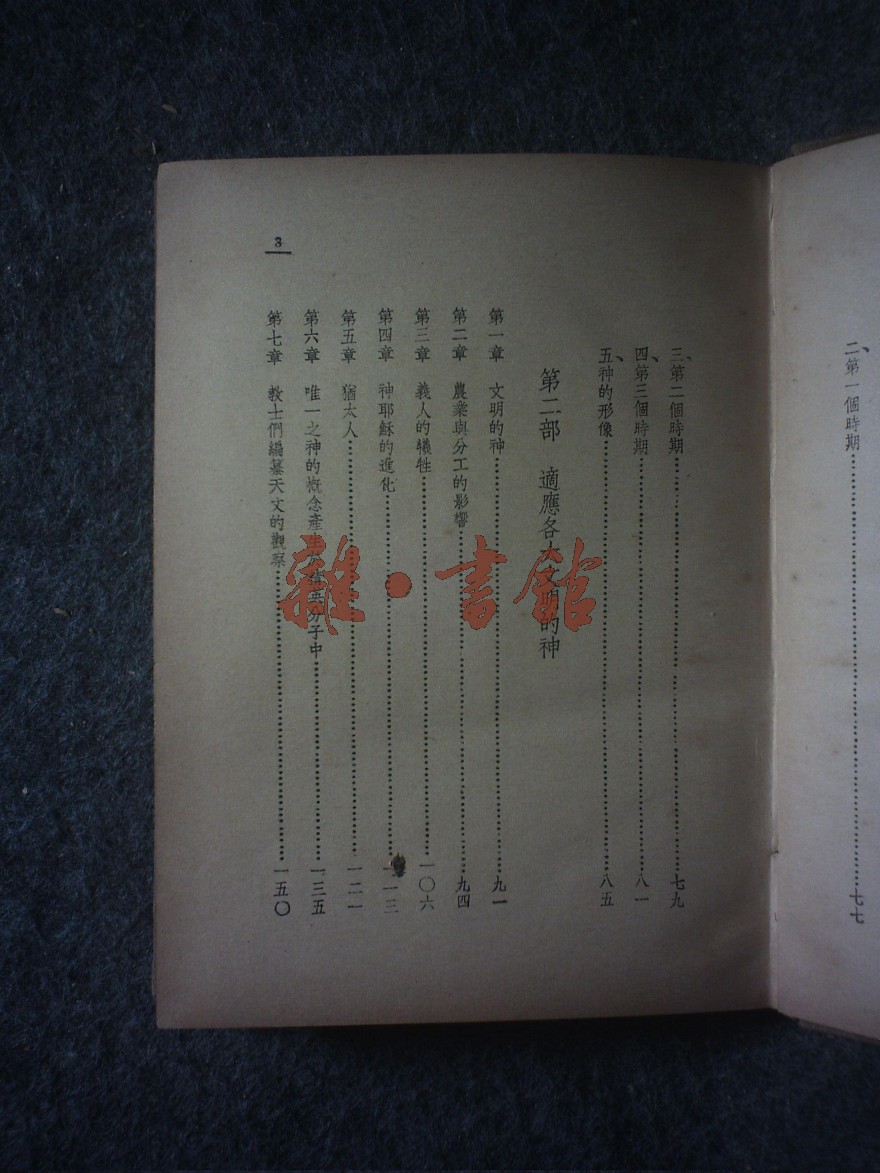 二、第一個時期……七七
三、第二個時期……七九
四、第三個時期……八一
五、神的形像……八五
第二部 適應各大文明的神
第一章 文明的神……九一
第二章 農業與分工的影響……九四
第三章 義人的犧牲……一〇六
第四章 神耶穌的進化……一一三
第五章 猶太人……一二一
第六章 唯一之神的概念產生於精英分子中……一三五
第七章 教士們編纂天文的觀察……一五〇
3
雜·書館